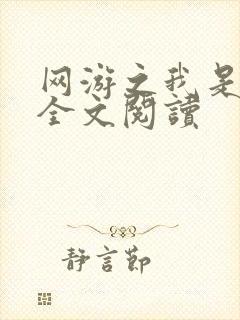 网游之我是
全文閱讀
靜言節